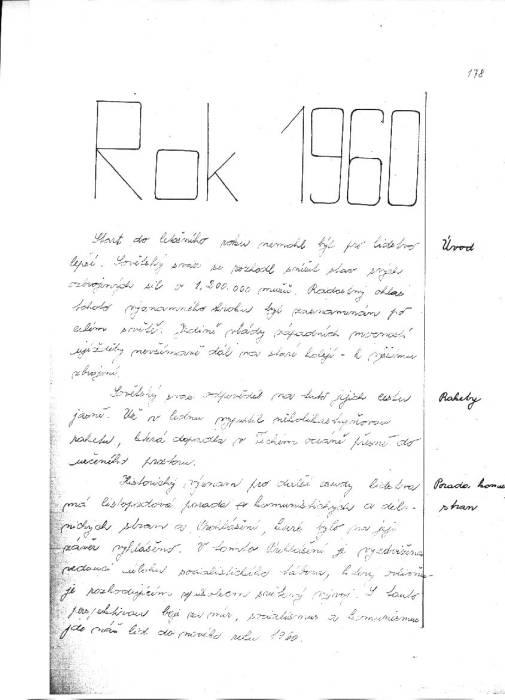 178
Rok 1960
Start do letošního roku nemohl být pro lidstvo
Úvod
lepší. Sovětský svaz se rozhodl snížit stav svých
ozbrojených sil o 1,200.000 mužů. Radostný ohlas
tohoto významného kroku byl zaznamenán po
celém světě. Jedině vlády západních mocností
ujížděly nevšímavě dál na staré koleji - k
zbrojení.
Sovětský svaz odpověděl na tuto jejich cestu
Rakety
jasně. Už v lednu vypustil několikastupňovou
raketu, která dopadla v Tichém oceáně přesně do
určeného prostoru.
Historický význam pro další osudy lidstva
Porada komu
má listopadová porada komunistických a děl-
stran
nických stran a Prohlášení, které bylo na její
závěr vyhlášeno. V tomto Prohlášení je vyzdvižena
vedoucí úloha socialistického tábora, který
je rozhodujícím světový vývoj. S touto
perspektivou boje za mír, socialismus a komunismus
jde náš lid do nového roku 1960.